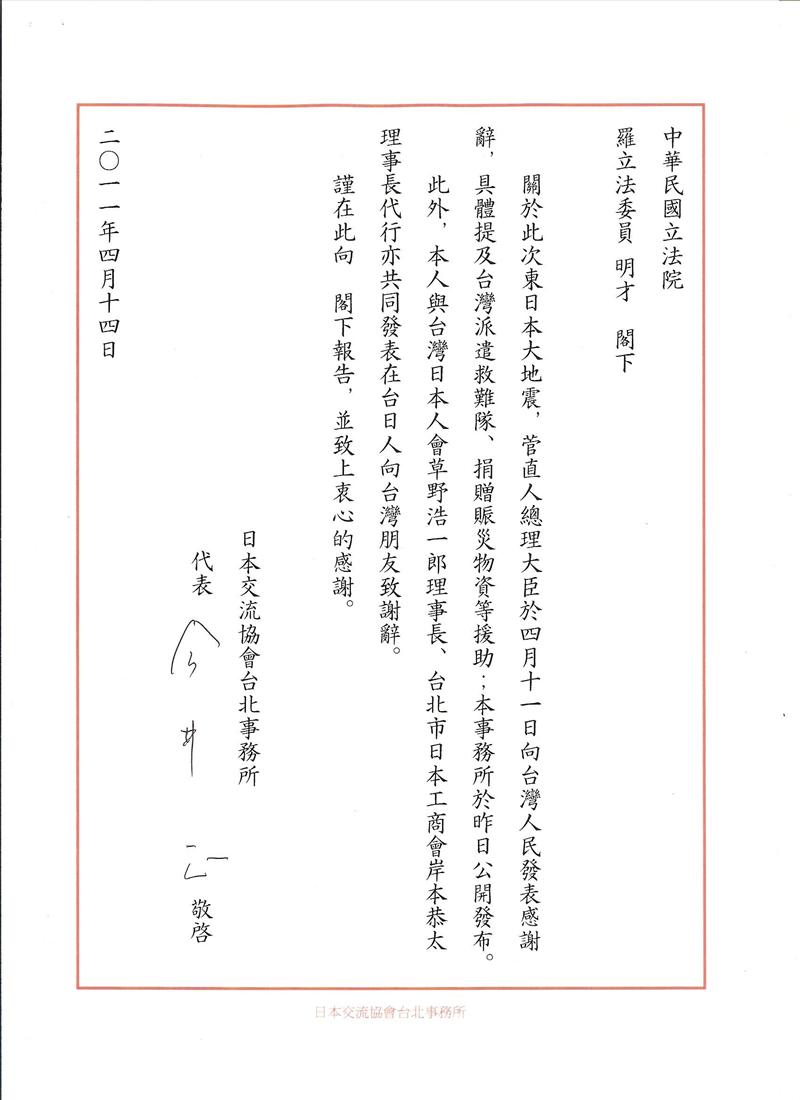 中華民國立法院
羅立法委員 明才 閣下
關於此次東日本大地震，菅直人總理大臣於四月十一日向台灣人民發表感謝
辭，具體提及台灣派遣救難隊、捐贈賑災物資等援助；本事務所於昨日公開發布。
此外，本人與台灣日本人會草野浩一郎理事長、台北市日本工商會岸本恭太
理事長代行亦共同發表在台日人向台灣朋友致謝辭。
謹在此向 閣下報告，並致上衷心的感謝。
日本交流協會台北事務所
代表 今井正 敬啓
二〇一一年四月十四日
日本交流協會台北事務所